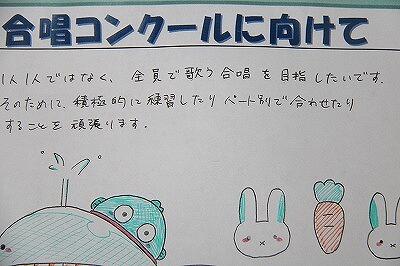 合唱コンクールに向けて
1人1人ではなく、全員で歌う合唱を目指したいです。
そのために、積極的に練習したりパート別で合わせたり
することを頑張ります。